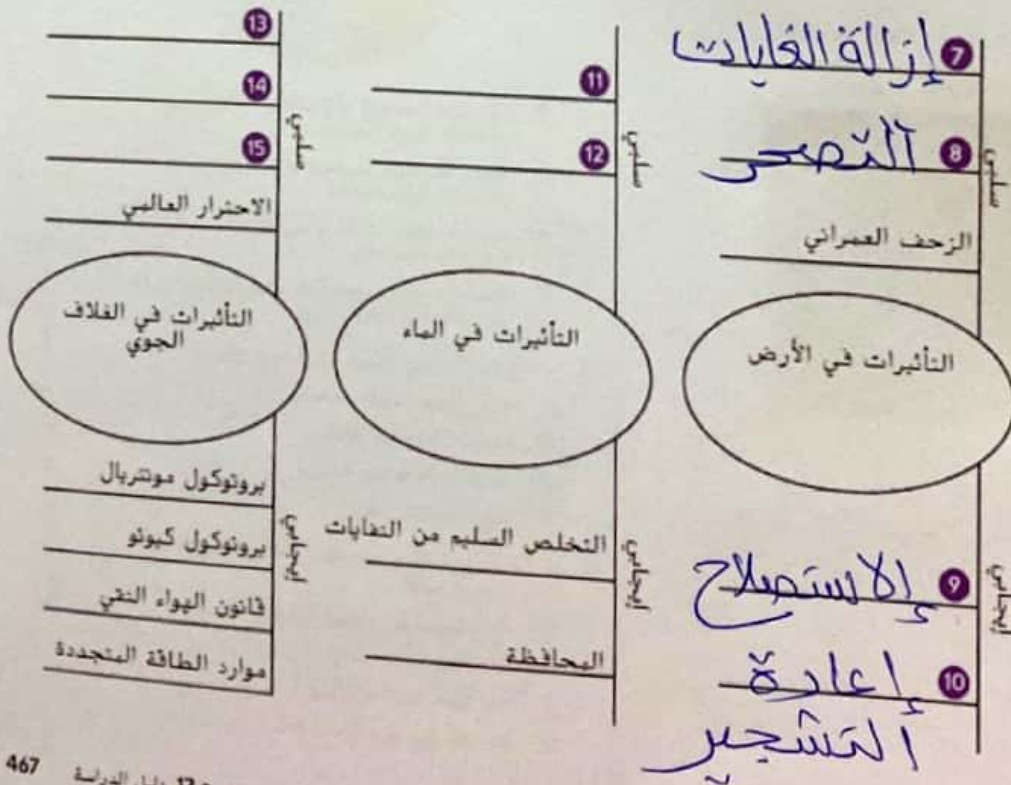 7 إزالة الغابات
8 التصحر
سلبي
الزحف العمراني
التأثيرات في الأرض
إيجابي
9 إلاستصلاح
10 إعادة
التشجير
11
12
سلبي
التأثيرات في الماء
إيجابي
التخلص السليم من النفايات
المحافظة
13
14
15
سلبي
الاحترار العالمي
التأثيرات في الغلاف
الجوي
إيجابي
بروتوكول مونتريال
بروتوكول كيوتو
قانون الهواء النقي
موارد الطاقة المتجددة
دليل الدراسة 467